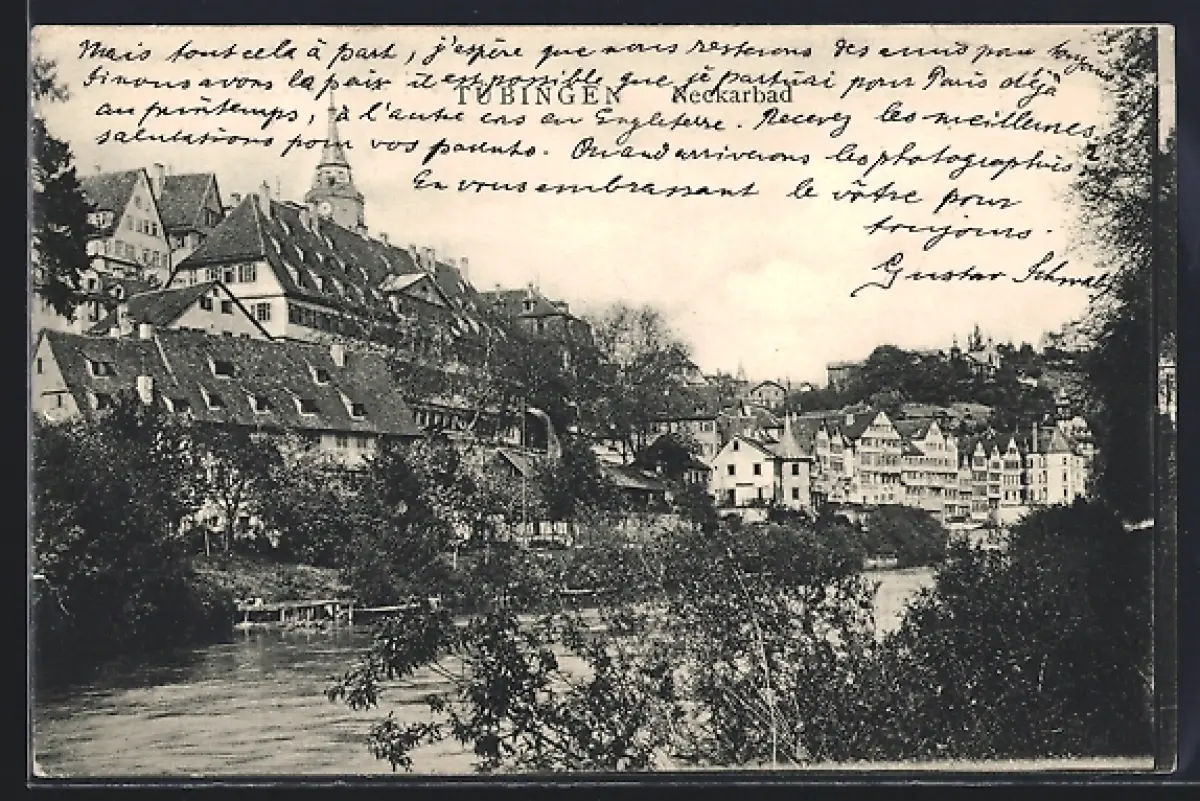 Mais tout cela à part, j'espère que nous resterons des amis pour toujours
Si nous avons la paix il est possible que je partirai pour Paris déjà
TÜBINGEN Neckarbad
au printemps, à l'autre cas en Engleterre. Recevez les meilleures
salutations pour vos parents. Quand arriverons les photographies
En vous embrassant le vôtre pour
toujours.
Gustav Schwab